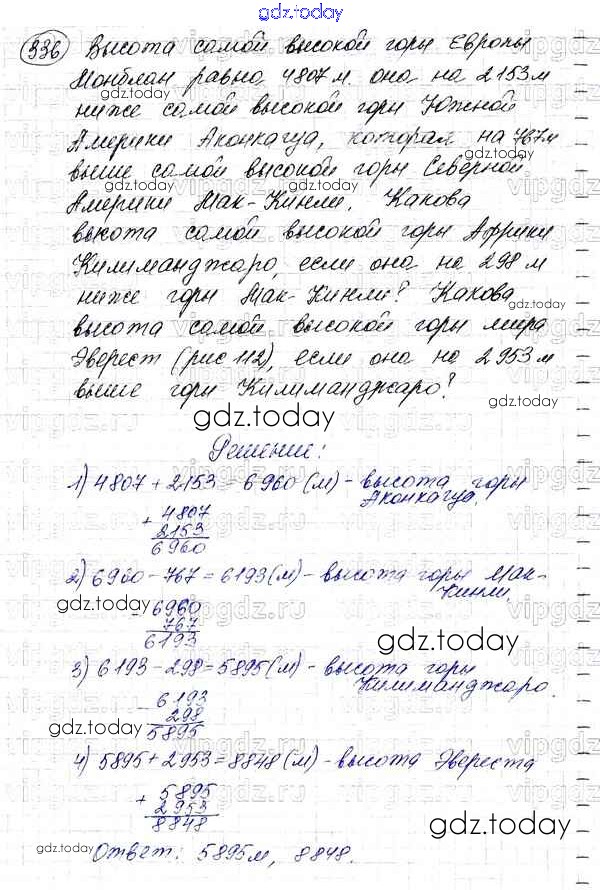 gdz.today
336 Высота самой высокой горы Европы
Монблан равна 4807 м. она на 2153 м
ниже самой высокой горы Южной
Америки Аконкагуа, которая на 767 м
выше самой высокой горы Северной
Америки Мак-Кинли. Какова
высота самой высокой горы Африки
Килиманджаро, если она на 298 м
ниже горы Мак-Кинли? Какова
высота самой высокой горы мира
Эверест (рис 112), если она на 2953 м
выше горы Килиманджаро?
gdz.today
Решение:
1) 4807 + 2153 = 6960 (м) - высота горы
Аконкагуа.
+ 4807
2153
6960
2) 6960 - 767 = 6193 (м) - высота горы Мак-
Кинли.
- 6960
767
6193
gdz.today
3) 6193 - 298 = 5895 (м) - высота горы
Килиманджаро.
- 6193
298
5895
4) 5895 + 2953 = 8848 (м) - высота Эвереста
+ 5895
2953
8848
gdz.today
Ответ: 5895 м, 8848.